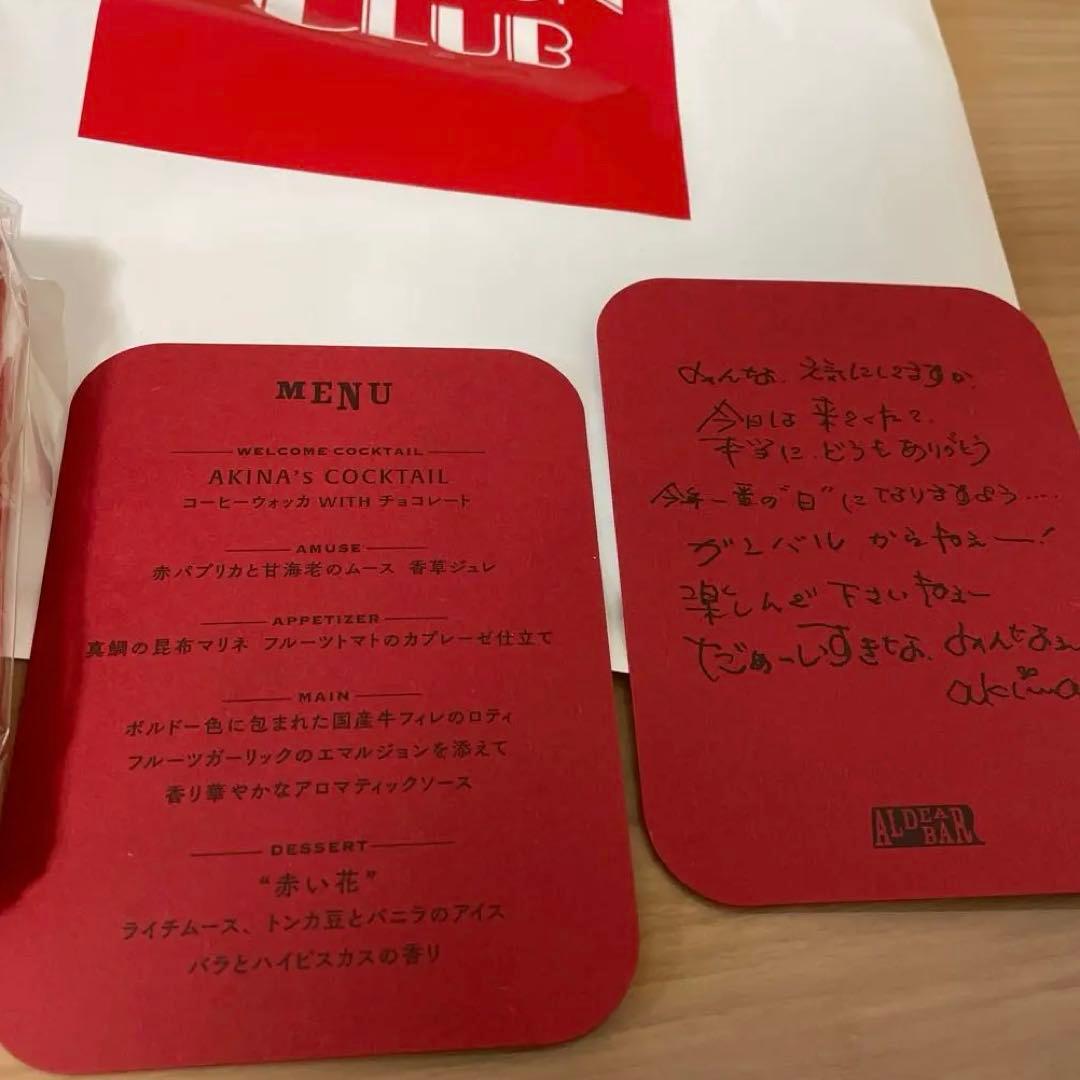 CLUB
MENU
WELCOME COCKTAIL
AKINA's COCKTAIL
コーヒーウォッカ WITH チョコレート
AMUSE
赤パプリカと甘海老のムース 香草ジュレ
APPETIZER
真鯛の昆布マリネ フルーツトマトのカプレーゼ仕立て
MAIN
ボルドー色に包まれた国産牛フィレのロティ
フルーツガーリックのエマルジョンを添えて
香り華やかなアロマティックソース
DESSERT
“赤い花”
ライチムース、トンカ豆とバニラのアイス
バラとハイビスカスの香り
みんな、元気にしてますか
今日は来てくれて、
本当に どうもありがとう
今年一番の“日”になりますよう....
ガンバル からねぇー!
楽しんで 下さいねぇー
だぁーいすきな、みんなぁ
akina
ALDEA
BAR